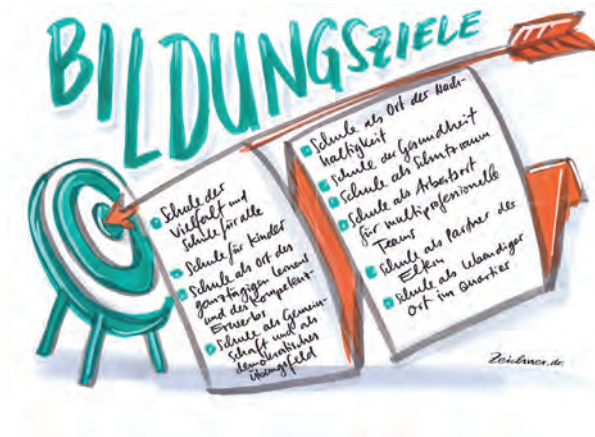 BILDUNGSZIELE
Schule der
Vielfalt und
Schule für alle
Schule für Kinder
Schule als Ort des
ganztägigen Lernens
und des Kompetenz-
Erwerbs
Schule als Gemein-
schaft und als
demokratisches
Übungsfeld
Schule als Ort der Nach-
haltigkeit
Schule der Gesundheit
Schule als Schutzraum
Schule als Arbeitsort
für multiprofessionelle
Teams
Schule als Partner der
Eltern
Schule als lebendiger
Ort im Quartier
Zeichner.de